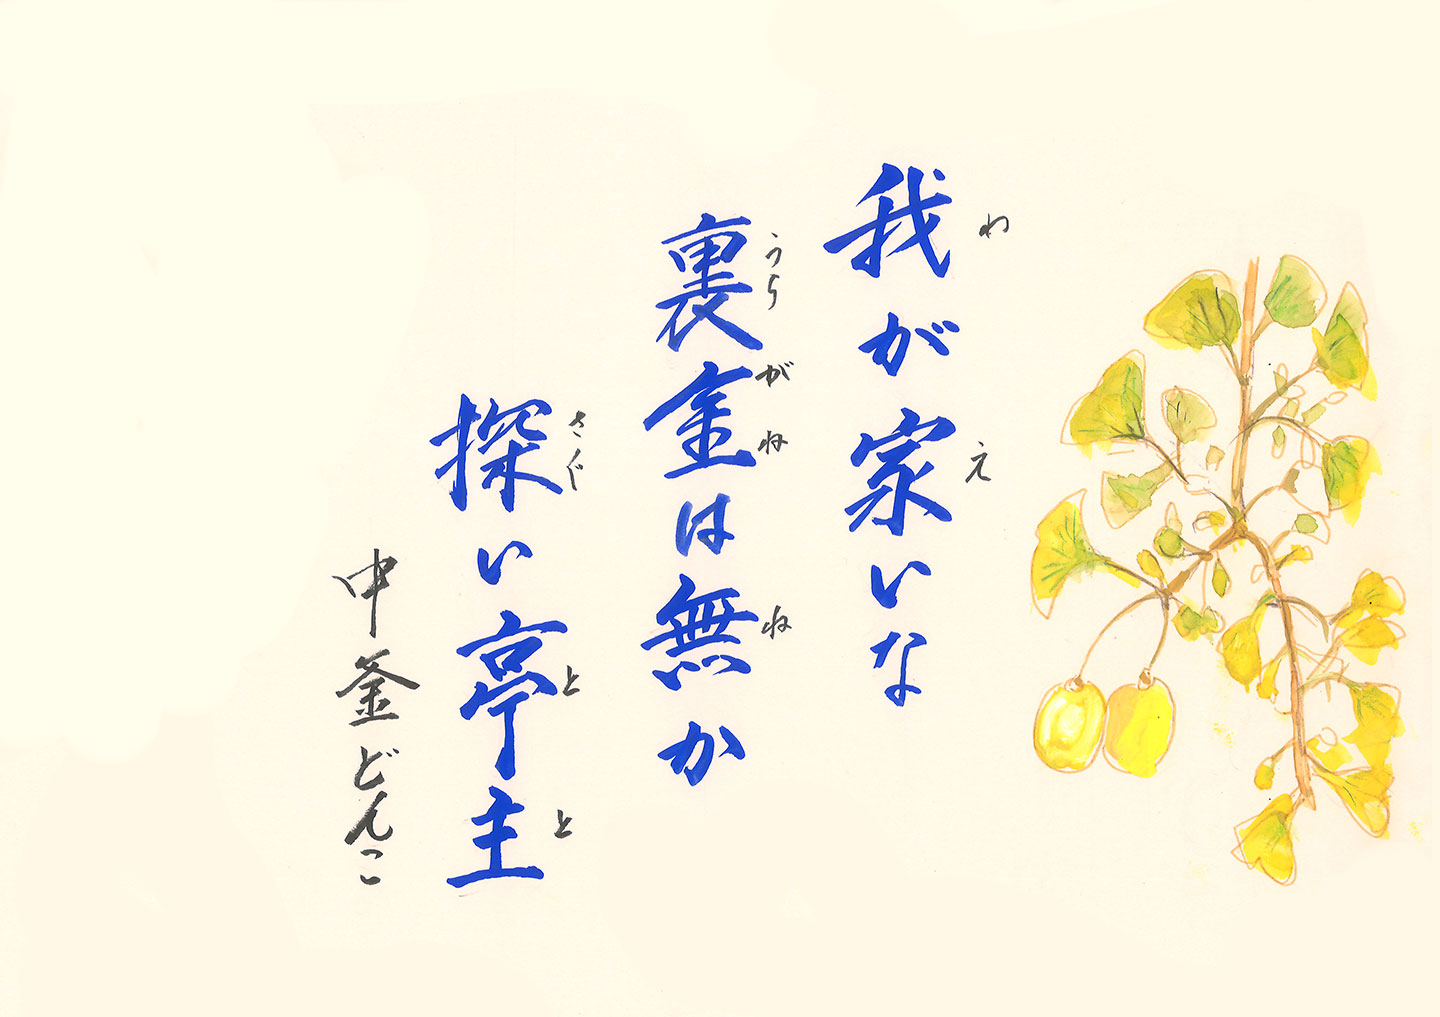 我が家いな
わ え
裏金は無か
うらがね ね
探い亭主
さぐ とと
中釜どんこ